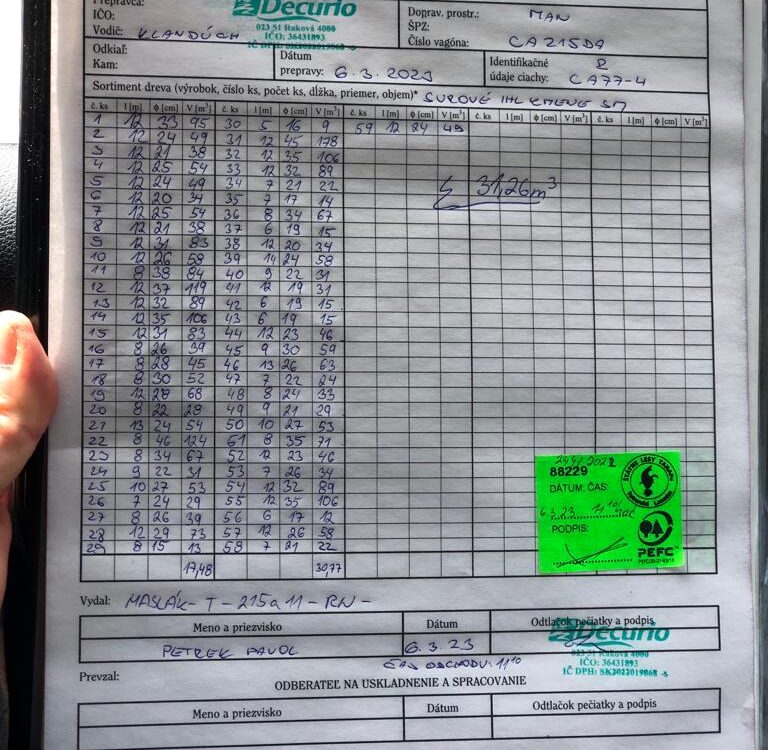 Prepravca:
Decurio
IČO:
023 51 Raková 4000
Vodič: KLANDÚCH
IČO: 36431893
Doprav. prostr.: MAN
ŠPZ:
Číslo vagóna: CA215DA
Odkiaľ:
Kam:
Dátum
prepravy: 6.3.2023
Identifikačné
údaje ciachy: CA77-4
Sortiment dreva (výrobok, číslo ks, počet ks, dĺžka, priemer, objem)* SUROVÉ IHL KMENE SM
č. ks l [m] ϕ [cm] V [m³] č. ks l [m] ϕ [cm] V [m³] č. ks l [m] ϕ [cm] V [m³] č. ks l [m] ϕ [cm] V [m³] č. ks l [m] ϕ [cm] V [m³]
1 12 33 95 30 5 16 9 59 12 24 49
2 12 24 49 31 12 45 178
3 12 21 38 32 12 35 106
4 12 25 54 33 12 32 89
5 12 24 49 34 7 21 22
6 12 20 34 35 7 17 14
7 12 25 54 36 8 34 67
8 12 21 38 37 6 19 15
9 12 31 83 38 12 20 34
10 12 26 58 39 14 24 58
11 8 38 84 40 9 22 31
12 12 37 119 41 12 19 31
13 12 32 89 42 6 19 15
14 12 35 106 43 6 19 15
15 12 31 83 44 12 23 46
16 8 26 39 45 9 30 59
17 8 28 45 46 13 26 63
18 8 30 52 47 7 22 24
19 12 28 68 48 8 24 33
20 8 22 28 49 9 21 29
21 13 24 54 50 10 27 53
22 8 46 124 51 8 35 71
23 8 34 67 52 12 23 46
24 9 22 31 53 7 26 34
25 10 27 53 54 12 32 89
26 7 24 29 55 12 35 106
27 8 26 39 56 6 17 12
28 12 29 73 57 12 26 58
29 8 15 13 58 7 21 22
17,48 30,77
31,26m³
88229
DÁTUM: ČAS:
6.3.23 11¹⁰
PODPIS:
ŠTÁTNE LESY TANAPU
PEFC
Vydal: MASLÁK - T - 215a11 - RN -
Meno a priezvisko Dátum Odtlačok pečiatky a podpis
PETREK PAVOL 6.3.23
Decurio
023 51 Raková 4000
IČO: 36431893
IČ DPH: SK2022019868
Prevzal: ČAS ODCHODU: 11¹⁰
ODBERATEĽ NA USKLADNENIE A SPRACOVANIE
Meno a priezvisko Dátum Odtlačok pečiatky a podpis